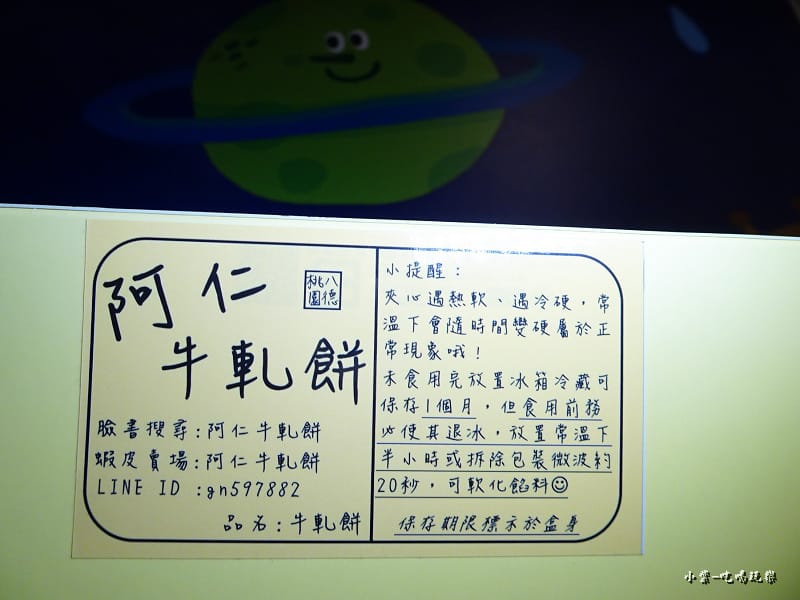 阿仁
桃園
八德
牛軋餅
臉書搜尋:阿仁牛軋餅
蝦皮賣場:阿仁牛軋餅
LINE ID :gn597882
品名:牛軋餅
小提醒:
夾心遇熱軟、遇冷硬,常
溫下會隨時間變硬屬於正
常現象哦!
未食用完放置冰箱冷藏可
保存1個月,但食用前務
必使其退冰,放置常溫下
半小時或拆除包裝微波約
20秒,可軟化餡料☺
保存期限標示於盒身
小紫-吃喝玩樂